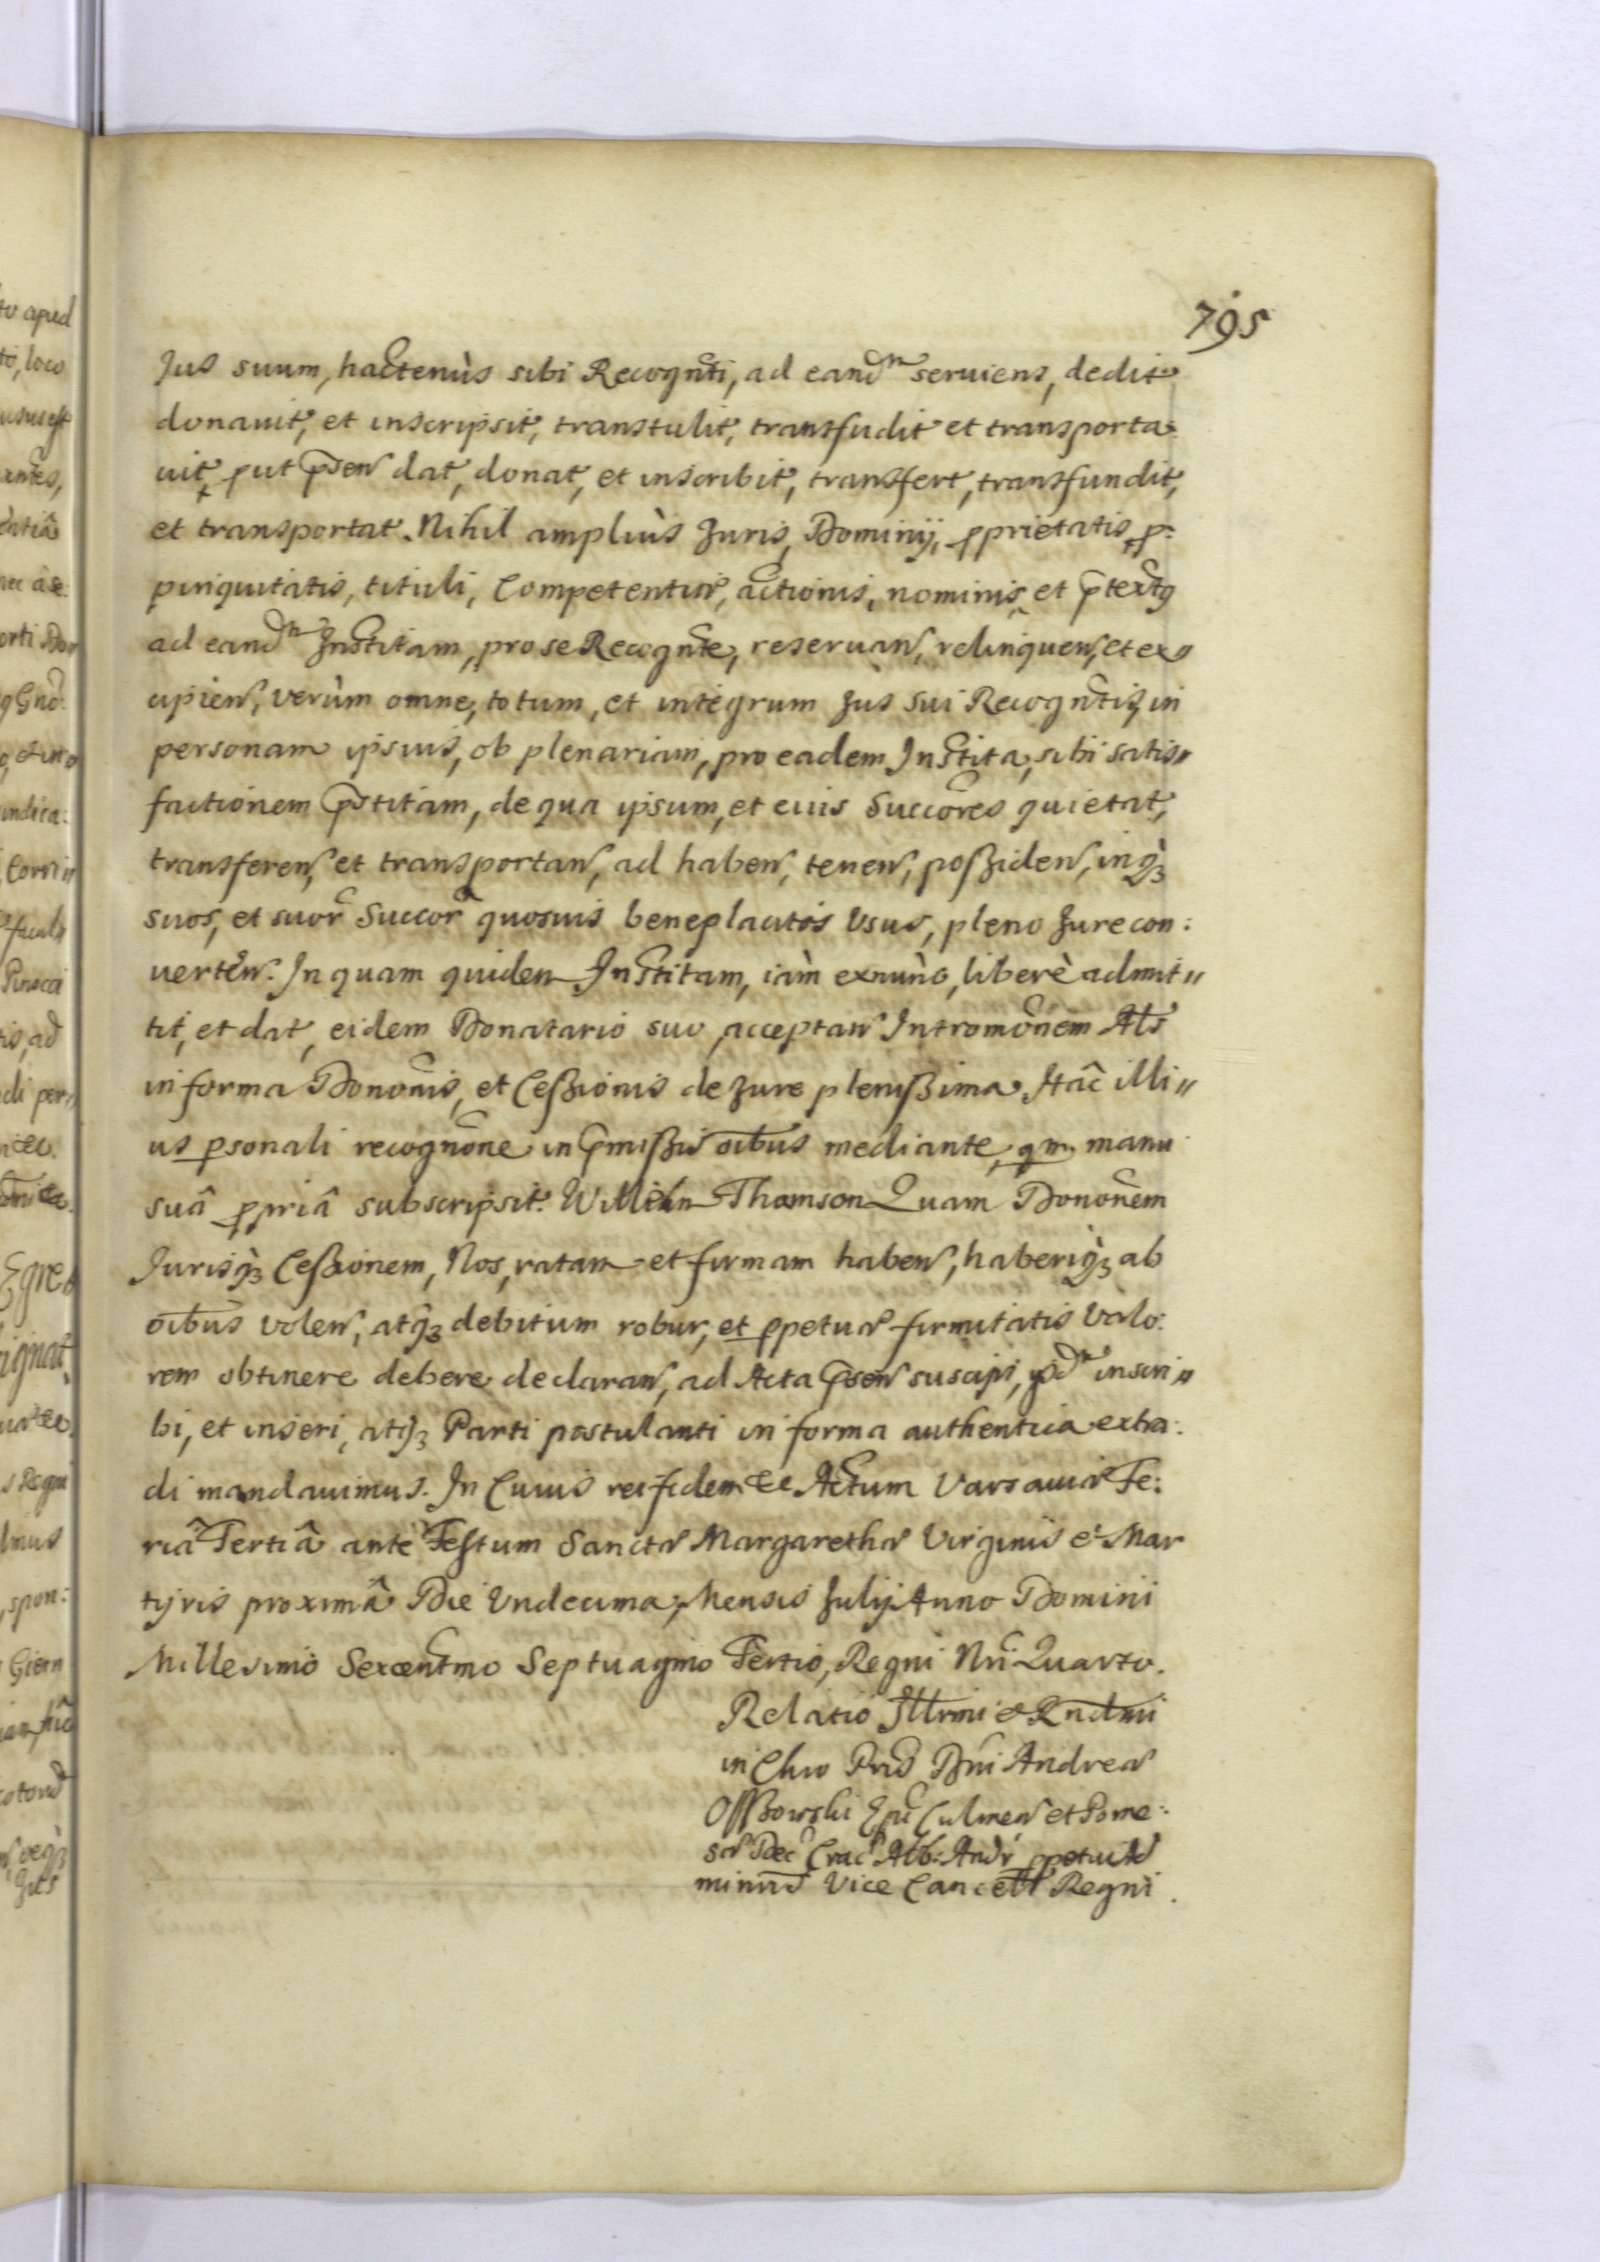 795
Jus suum, hactenùs sibi Recognti, ad eandm seruiens, dedit
donauit, et inscripsit, transtulit, transfudit et transporta-
uit, put pnsen dat, donat, et inscribit, transfert, transfundit,
et transportat. Nihil ampliùs Juris, Dominij, pprietatis, p-
pinquitatis, tituli, Competentiæ, actionis, nominis, et ptextus
ad eandm Institam, pro se Recognte, reseruan, relinquen, et ex
cipien, verùm omne, totum, et integrum Jus sui Recogntis in
personam ipsius, ob plenariam, pro eadem Instita, sibi satis„
factionem pstitam, de qua ipsum, et eius Succores quietat,
transferen, et transportan, ad haben, tenen, poßiden, inq3
suos, et suor Succor quosuis beneplacitos Vsus, pleno Jure con:
uerten. In quam quidem Institam, iàm exnunc, liberè admit„
tit, et dat, eidem Donatario suo acceptan Intromonem Als
in forma Dononis, et Ceßionis de Jure plenißima. Hac illi„
us psonali recognone in pmißis oibus mediante, qm manu
suâ ppriâ subscripsit. Willielm Thomson Quam Dononem
Jurisq3 Ceßionem, Nos, ratam et firmam haben, haberiq3 ab
oibus volen, atq3 debitum robur, et ppetuæ firmitatis Valo:
rem obtinere debere declaran, ad Acta pnsen suscipi, inscri„
bi, et inseri, atq3 Parti postulanti in forma authentica extra:
di mandauimus. In Cuius rei fidem &c Actum Varsauiæ Fe:
riâ Tertiâ antè Festum Sanctæ Margarethæ Virginis et Mar
tyris proximâ Die Vndecima, Mensis Julij Anno Domini
Millesimo Sexcentmo Septuagmo Tertio, Regni Nri Quarto.
Relatio Illrmi et Rndmi
in Chro Pris Dni Andreæ
Olßowski Epi Culmen et Pome:
sa Dec Crac Abb: Andr ppetui Ad
miniris Vice Cancell Regni.